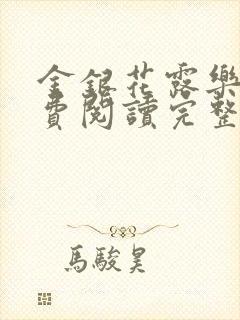 金銀花露樂
費閱讀完整
馬駿昊